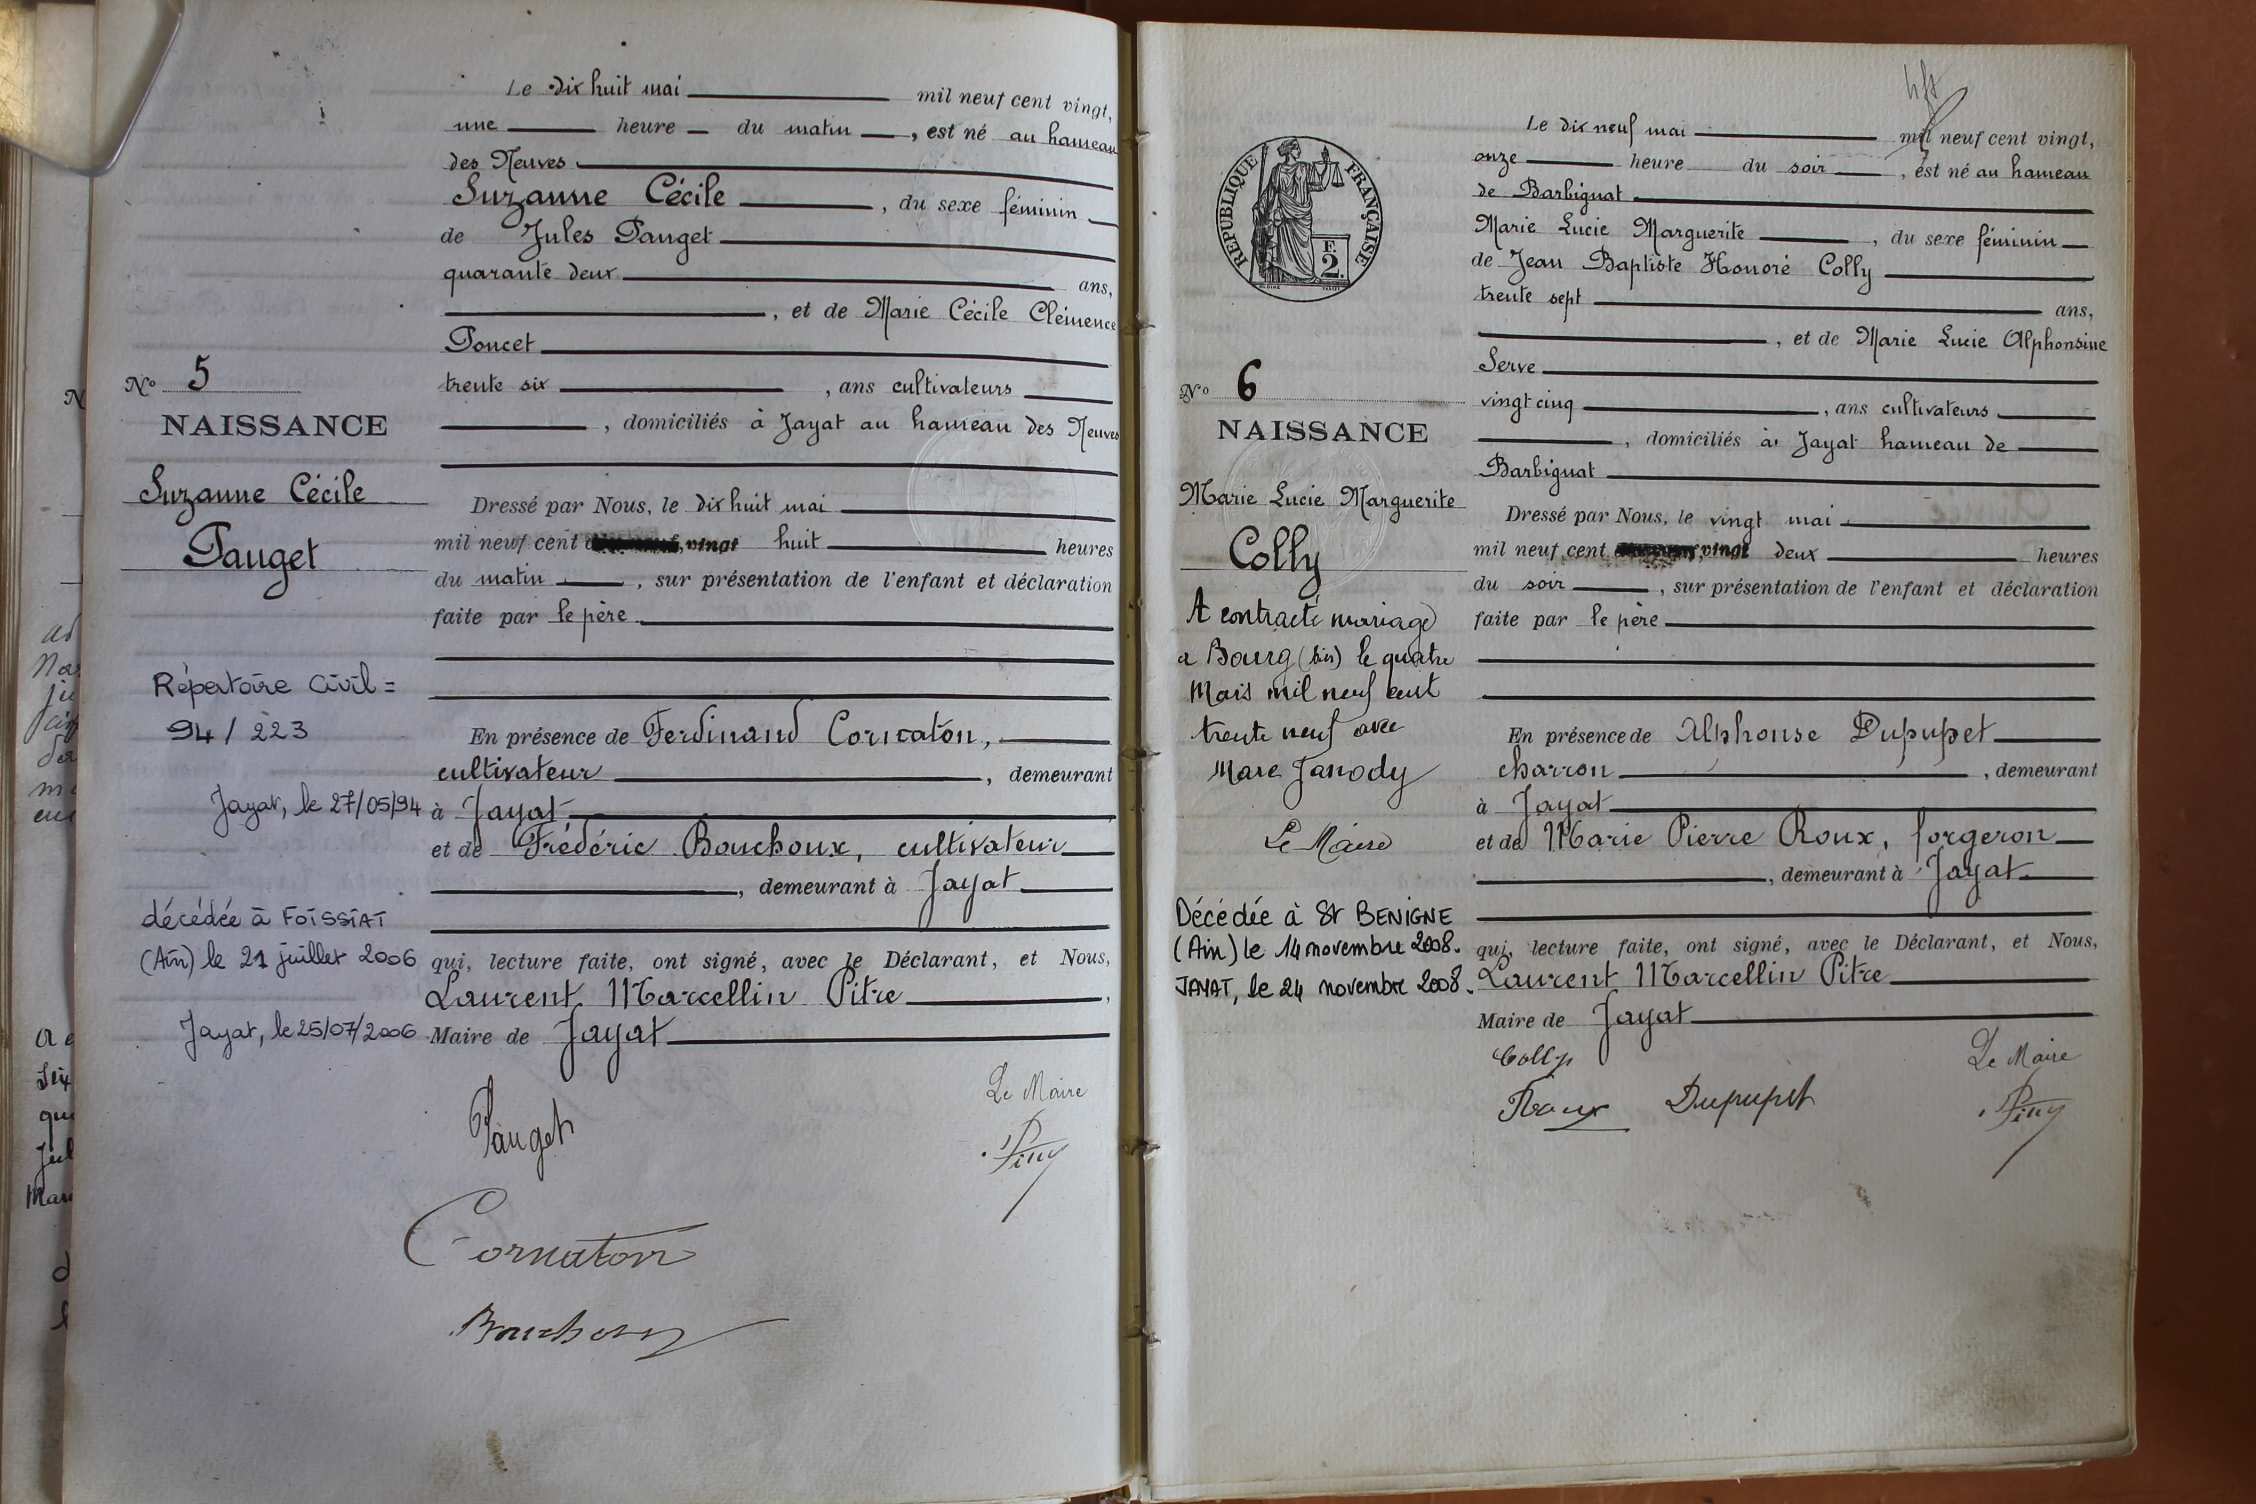 Le dix huit mai mil neuf cent vingt,
une heure du matin, est né au hameau
des Neuves
Suzanne Cécile, du sexe féminin
de Jules Pauget
quarante deux ans,
, et de Marie Cécile Clémence
Poncet
trente six, ans cultivateurs
, domiciliés à Jayat au hameau des Neuves
Nº 5
NAISSANCE
Suzanne Cécile
Pauget
Dressé par Nous, le dix huit mai
mil neuf cent vingt huit heures
du matin, sur présentation de l'enfant et déclaration
faite par le père
Répertoire Civil =
94 / 223
Jayat, le 27/05/94
En présence de Ferdinand Cornaton,
cultivateur, demeurant
à Jayat
et de Frédéric Bouchoux, cultivateur
, demeurant à Jayat
décédée à FOISSIAT
(Ain) le 21 juillet 2006
Jayat, le 25/07/2006
qui, lecture faite, ont signé, avec le Déclarant, et Nous,
Laurent Marcellin Pitre,
Maire de Jayat
Le Maire
Pauget
Cornaton
Bouchoux
Le dix neuf mai mil neuf cent vingt,
onze heure du soir, est né au hameau
de Barbignat
Marie Lucie Marguerite, du sexe féminin
de Jean Baptiste Honoré Colly
trente sept ans,
, et de Marie Lucie Alphonsine
Serve
vingt cinq, ans cultivateurs
, domiciliés à Jayat hameau de
Barbignat
REPUBLIQUE FRANÇAISE
F.
2.
Nº 6
NAISSANCE
Marie Lucie Marguerite
Colly
Dressé par Nous, le vingt mai
mil neuf cent vingt deux heures
du soir, sur présentation de l'enfant et déclaration
faite par le père
A contracté mariage
a Bourg (Ain) le quatre
Mars mil neuf cent
trente neuf avec
Marc Janody
Le Maire
En présence de Alphonse Dupupet
charron, demeurant
à Jayat
et de Marie Pierre Roux, forgeron
, demeurant à Jayat
Décédée à St BENIGNE
(Ain) le 14 novembre 2008.
JAYAT, le 24 novembre 2008.
qui, lecture faite, ont signé, avec le Déclarant, et Nous,
Laurent Marcellin Pitre
Maire de Jayat
Colly
Le Maire
Roux Dupupet